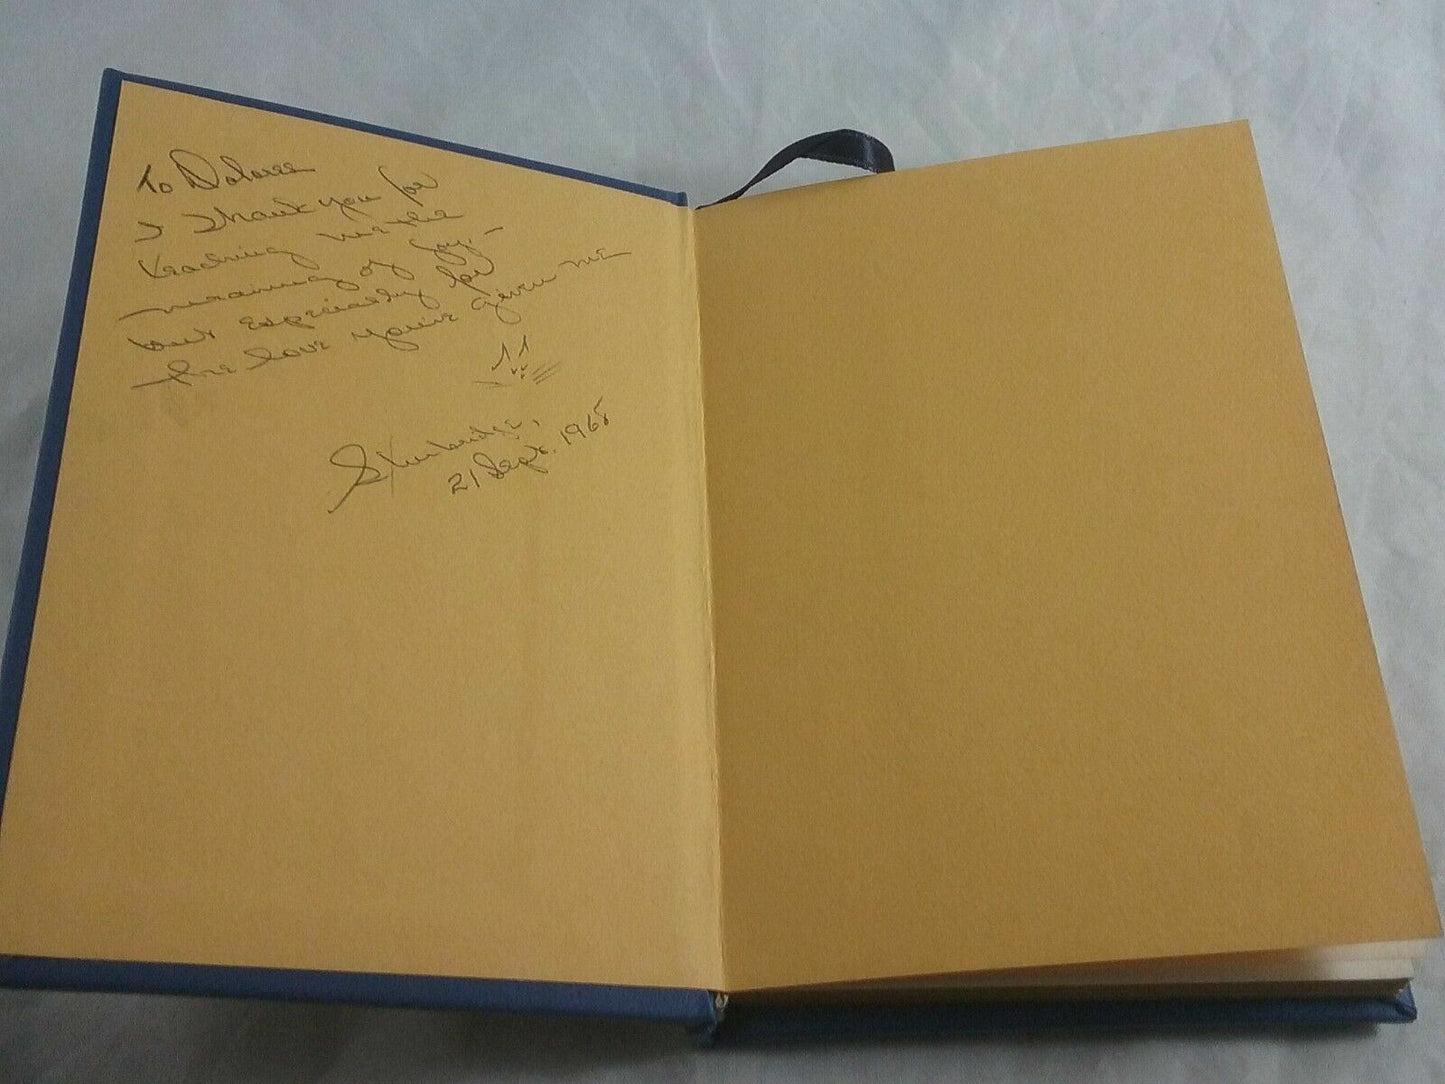 To Dolores
I thank you for
teaching me the
meaning of joy, -
but especially for
the love you've given me
!!
Skimbridge,
21 Sept. 1968